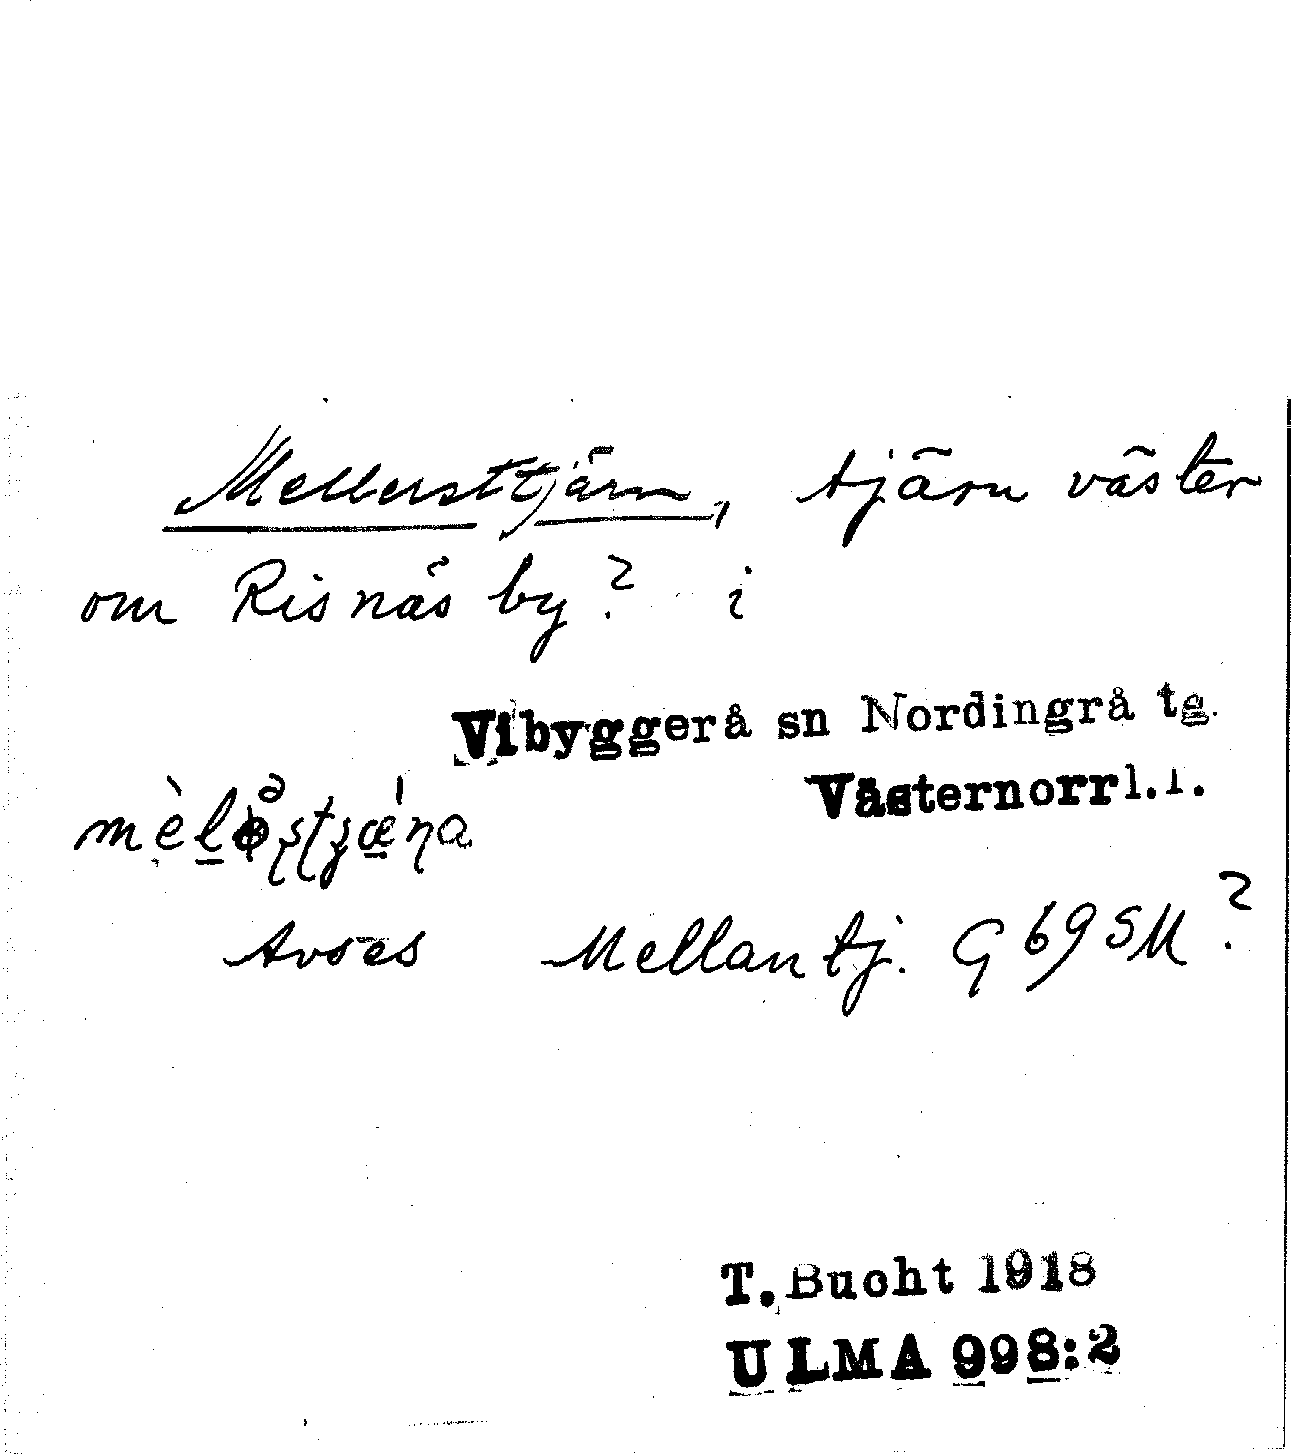 Mellersttjärn, tjärn väster
om Risnäs by? i
Vibyggerå sn Nordingrå tg.
Västernorrl.l.
Avses Mellantj. G 69 SM?
T. Bucht 1918
ULMA 998:2